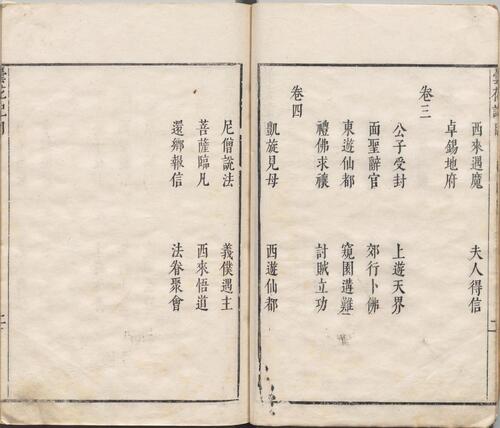 西來遇魔 夫人得信
卓錫地府
卷三
公子受封 上遊天界
面聖辭官 郊行卜佛
東遊仙都 窺園遘難
禮佛求禳 討賊立功
卷四
凱旋見母 西遊仙都
尼僧說法 義僕遇主
菩薩臨凡 西來悟道
還鄉報信 法眷聚會